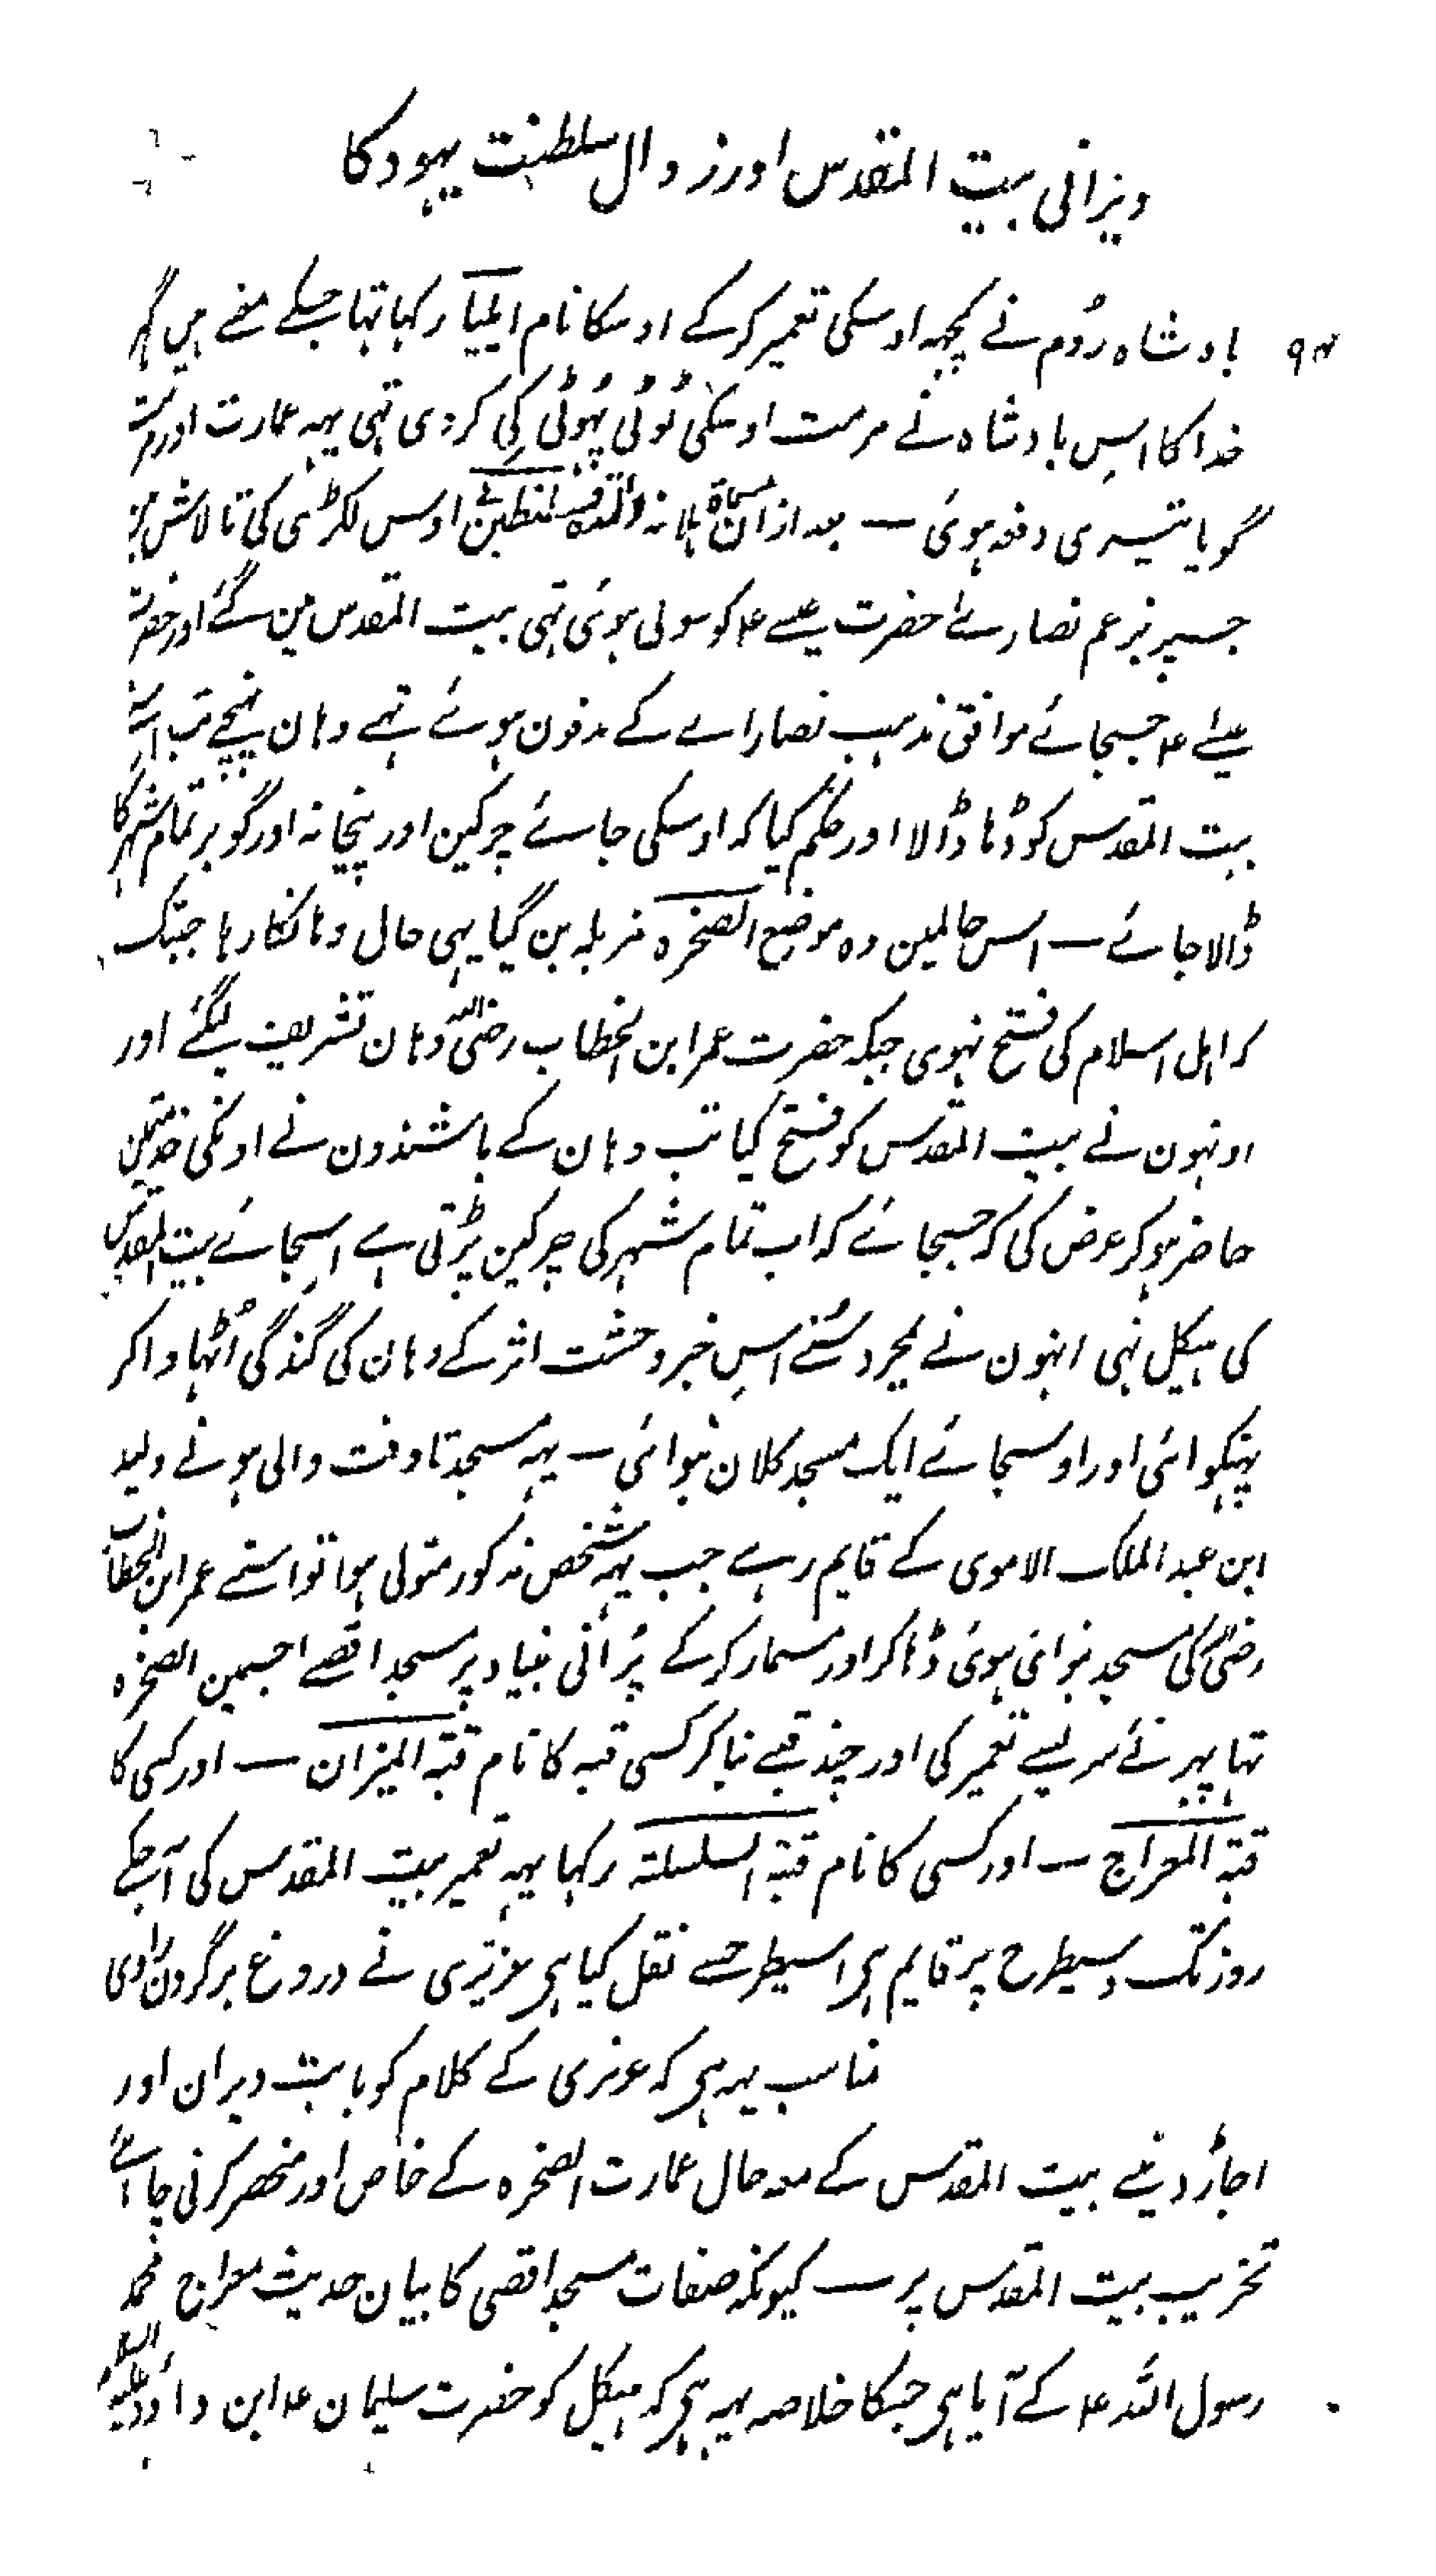 ویرانی بیت المقدس اور زوال سلطنت یہود کا
۹۴ بادشاہ رُوم نے کچہہ اوسکی تعمیر کر کے اوسکا نام ایلیا رکہا تہا جسکے معنے ہیں گہر
خدا کا اسِ بادشاہ نے مرمت اوسکی ٹوُٹی پہُوٹی کی کر دی تہی یہہ عمارت اور مرمت
گویا تیسری دفعہ ہوئی — بعد ازان مسماۃ ہلانہ والدہ قسطنطین نے اوس لکڑی کی تالاش مین
جسپر بزعم نصارےٰ حضرت عیسے ع کو سولی ہوئی تہی بیت المقدس مین گئے اور حضرت
عیسے ع جسجائے موافق مذہب نصاراے کے مدفون ہوئے تہے وہان پہنچے تب اسنے
بیت المقدس کو ڈہا ڈالا اور حکم کیا کہ اوسکی جائے چرکین اور پنچانہ اور گوبر تمام شہر کا
ڈالا جائے — اس حالمین وہ موضع الصخرہ مزبلہ بن گیا یہی حال وہانکا رہا جبتک
کہ اہل اسلام کی فتح نہوی جبکہ حضرت عمر ابن الخطاب رضی اللہ وہان تشریف لیگئے اور
اونہون نے بیت المقدس کو فتح کیا تب وہان کے باشندون نے اونکی خدمتمین
حاضر ہو کر عرض کی کہ جسجائے کہ اب تمام شہر کی چرکین پڑتی ہے اسِجائے بیت المقدس
کی ہیکل تہی انہون نے بمجرد سُننے اسِ خبر وحشت اثر کے وہان کی گندگی اُٹہا وا کر
پہنکوائی اور اوسجائے ایک مسجد کلان بنوائی — یہہ مسجد تا وقت والی ہونے ولید
ابن عبد الملک الاموی کے قایم رہے جب یہہ شخص مذکور متولی ہوا تو اسنے عمر ابن الخطاب
رضی کی مسجد بنوائی ہوئی ڈہا کر اور مسمار کر کے پُرانی بنیاد پر مسجد اقصے اجسمین الصخرہ
تہا پہر نئے سر یسے تعمیر کی اور چند قبے بنا کر کسی قبہ کا نام قبۃ المیزان — اور کسی کا
قبۃ المعراج — اور کسی کا نام قبۃ السلسلۃ رکہا یہہ تعمیر بیت المقدس کی آجکے
روز تک اوسیطرح پر قایم ہی اسیطرحسے نقل کیا ہی عزیزی نے دروغ بر گردن راوی
مناسب یہہ ہی کہ عزیزی کے کلام کو بابت ویران اور
اجاڑ دینے بیت المقدس کے معہ حال عمارت الصخرہ کے خاص اور منحصر کرنی چاہئے
تخریب بیت المقدس پر — کیونکہ صفات مسجد اقصی کا بیان حدیث معراج محمد
رسول اللہ ع کے آیا ہی جسکا خلاصہ یہہ ہی کہ ہیکل کو حضرت سلیمان ع ابن داؤد علیہ السلام